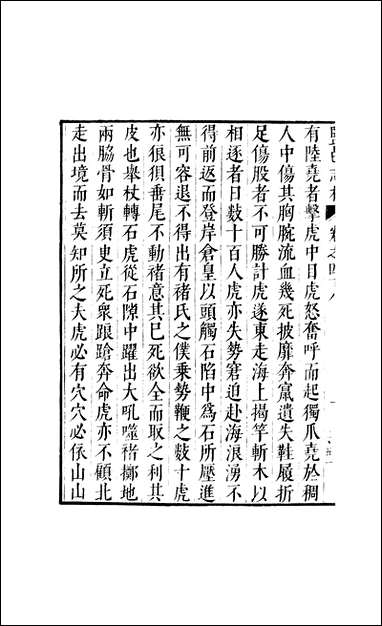 卷之四八
有陸堯者擊虎中目虎怒奮呼而起獨爪堯於稠
人中傷其胸腕流血幾死披靡奔竄遺失鞋屨折
足傷股者不可勝計虎遂東走海上揭竿斬木以
相逐者日數十百人虎亦失勢窘迫赴海浪湧不
得前返而登岸倉皇以頭觸石陷中為石所壓進
無可容退不得出有褚氏之僕乗勢鞭之數十虎
亦很狽垂尾不動褚意其巳死欲全而取之利其
皮也舉杖轉石虎從石隙中躍出大吼噬褚擲地
兩脇骨如斬須臾立死衆踉蹌奔命虎亦不顧北
走出境而去莫知所之夫虎必有穴穴必依山山